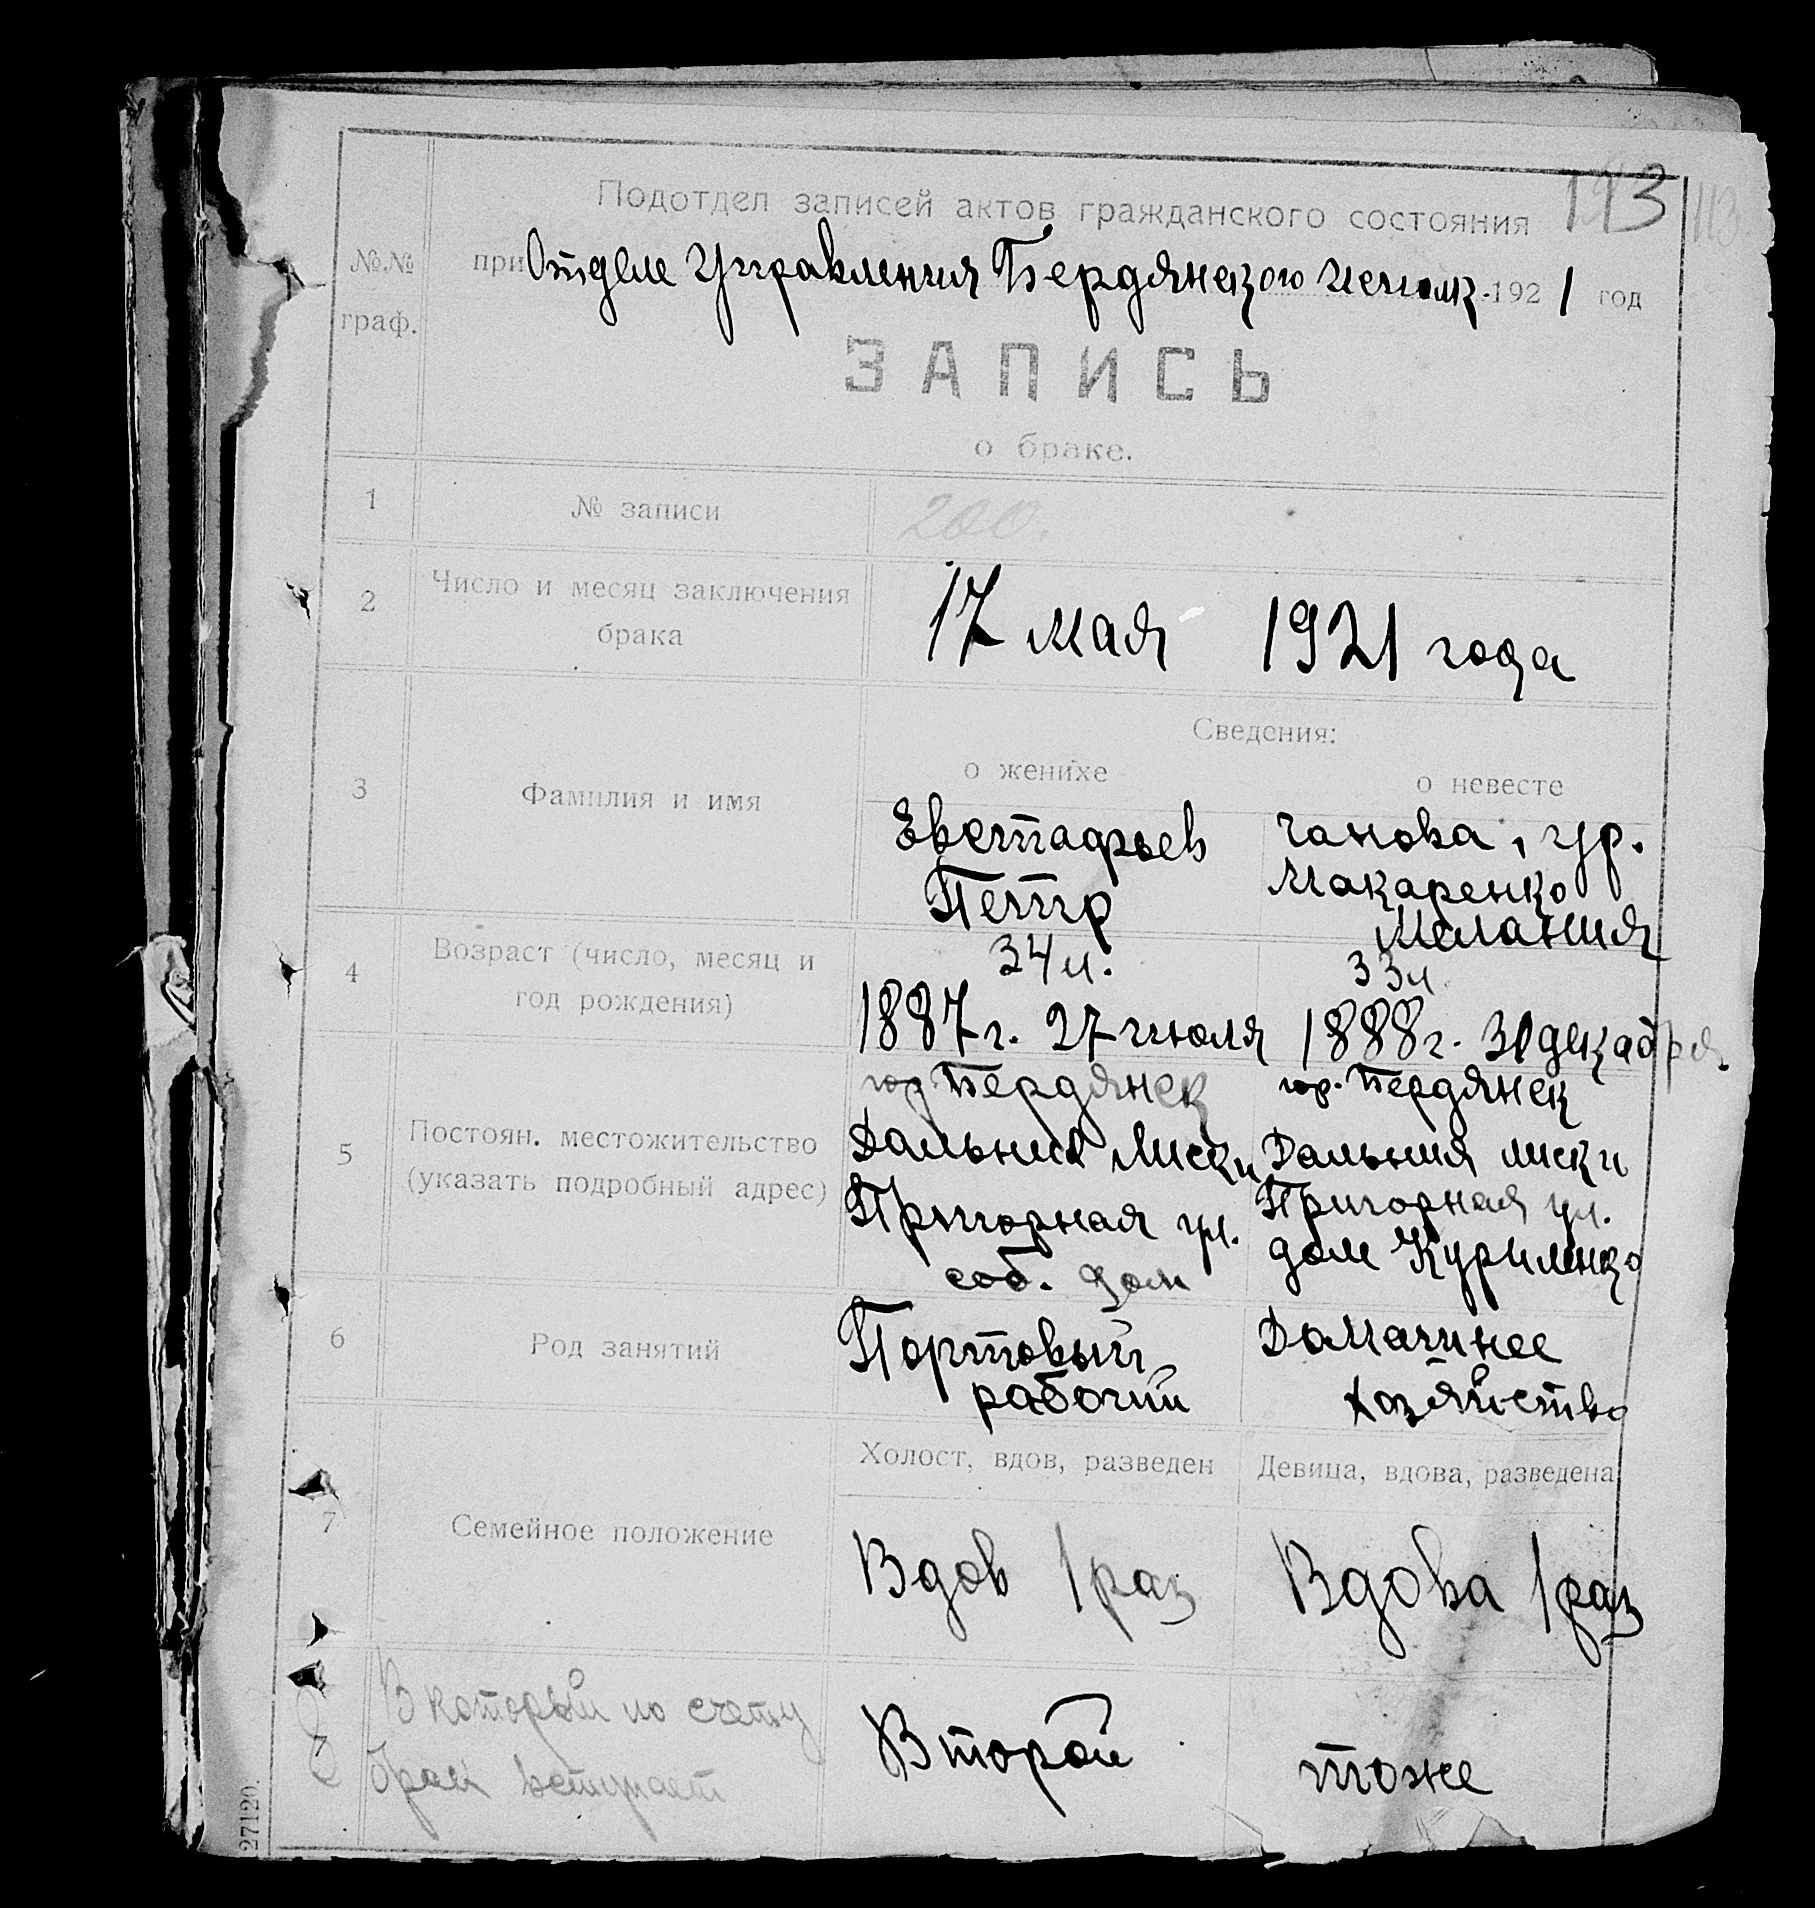 Подотдел записей актов гражданского состояния
113
№№ граф.
при Отделе Управления Бердянского Исполк. 1921 год
ЗАПИСЬ
о браке.
1 № записи 200.
2 Число и месяц заключения
брака
17 мая 1921 года
Сведения:
о женихе о невесте
3 Фамилия и имя
Евстафьев
Петр
Чанова, ур.
Макаренко
Мелания
4 Возраст (число, месяц и
год рождения)
34 л.
1887 г. 27 июля
33 л
1888 г. 31 декабря
5 Постоян. местожительство
(указать подробный адрес)
гор Бердянск
Дальния Лиски
Пригорная ул.
соб. дом
гор. Бердянск
Дальния лиски
Пригорная ул.
дом Куриленко
6 Род занятий
Портовый
рабочий
Домашнее
хозяйство
7 Семейное положение
Холост, вдов, разведен
Девица, вдова, разведена
Вдов 1 раз
Вдова 1 раз
В который по счету
брак вступает
Второй
тоже
27120.